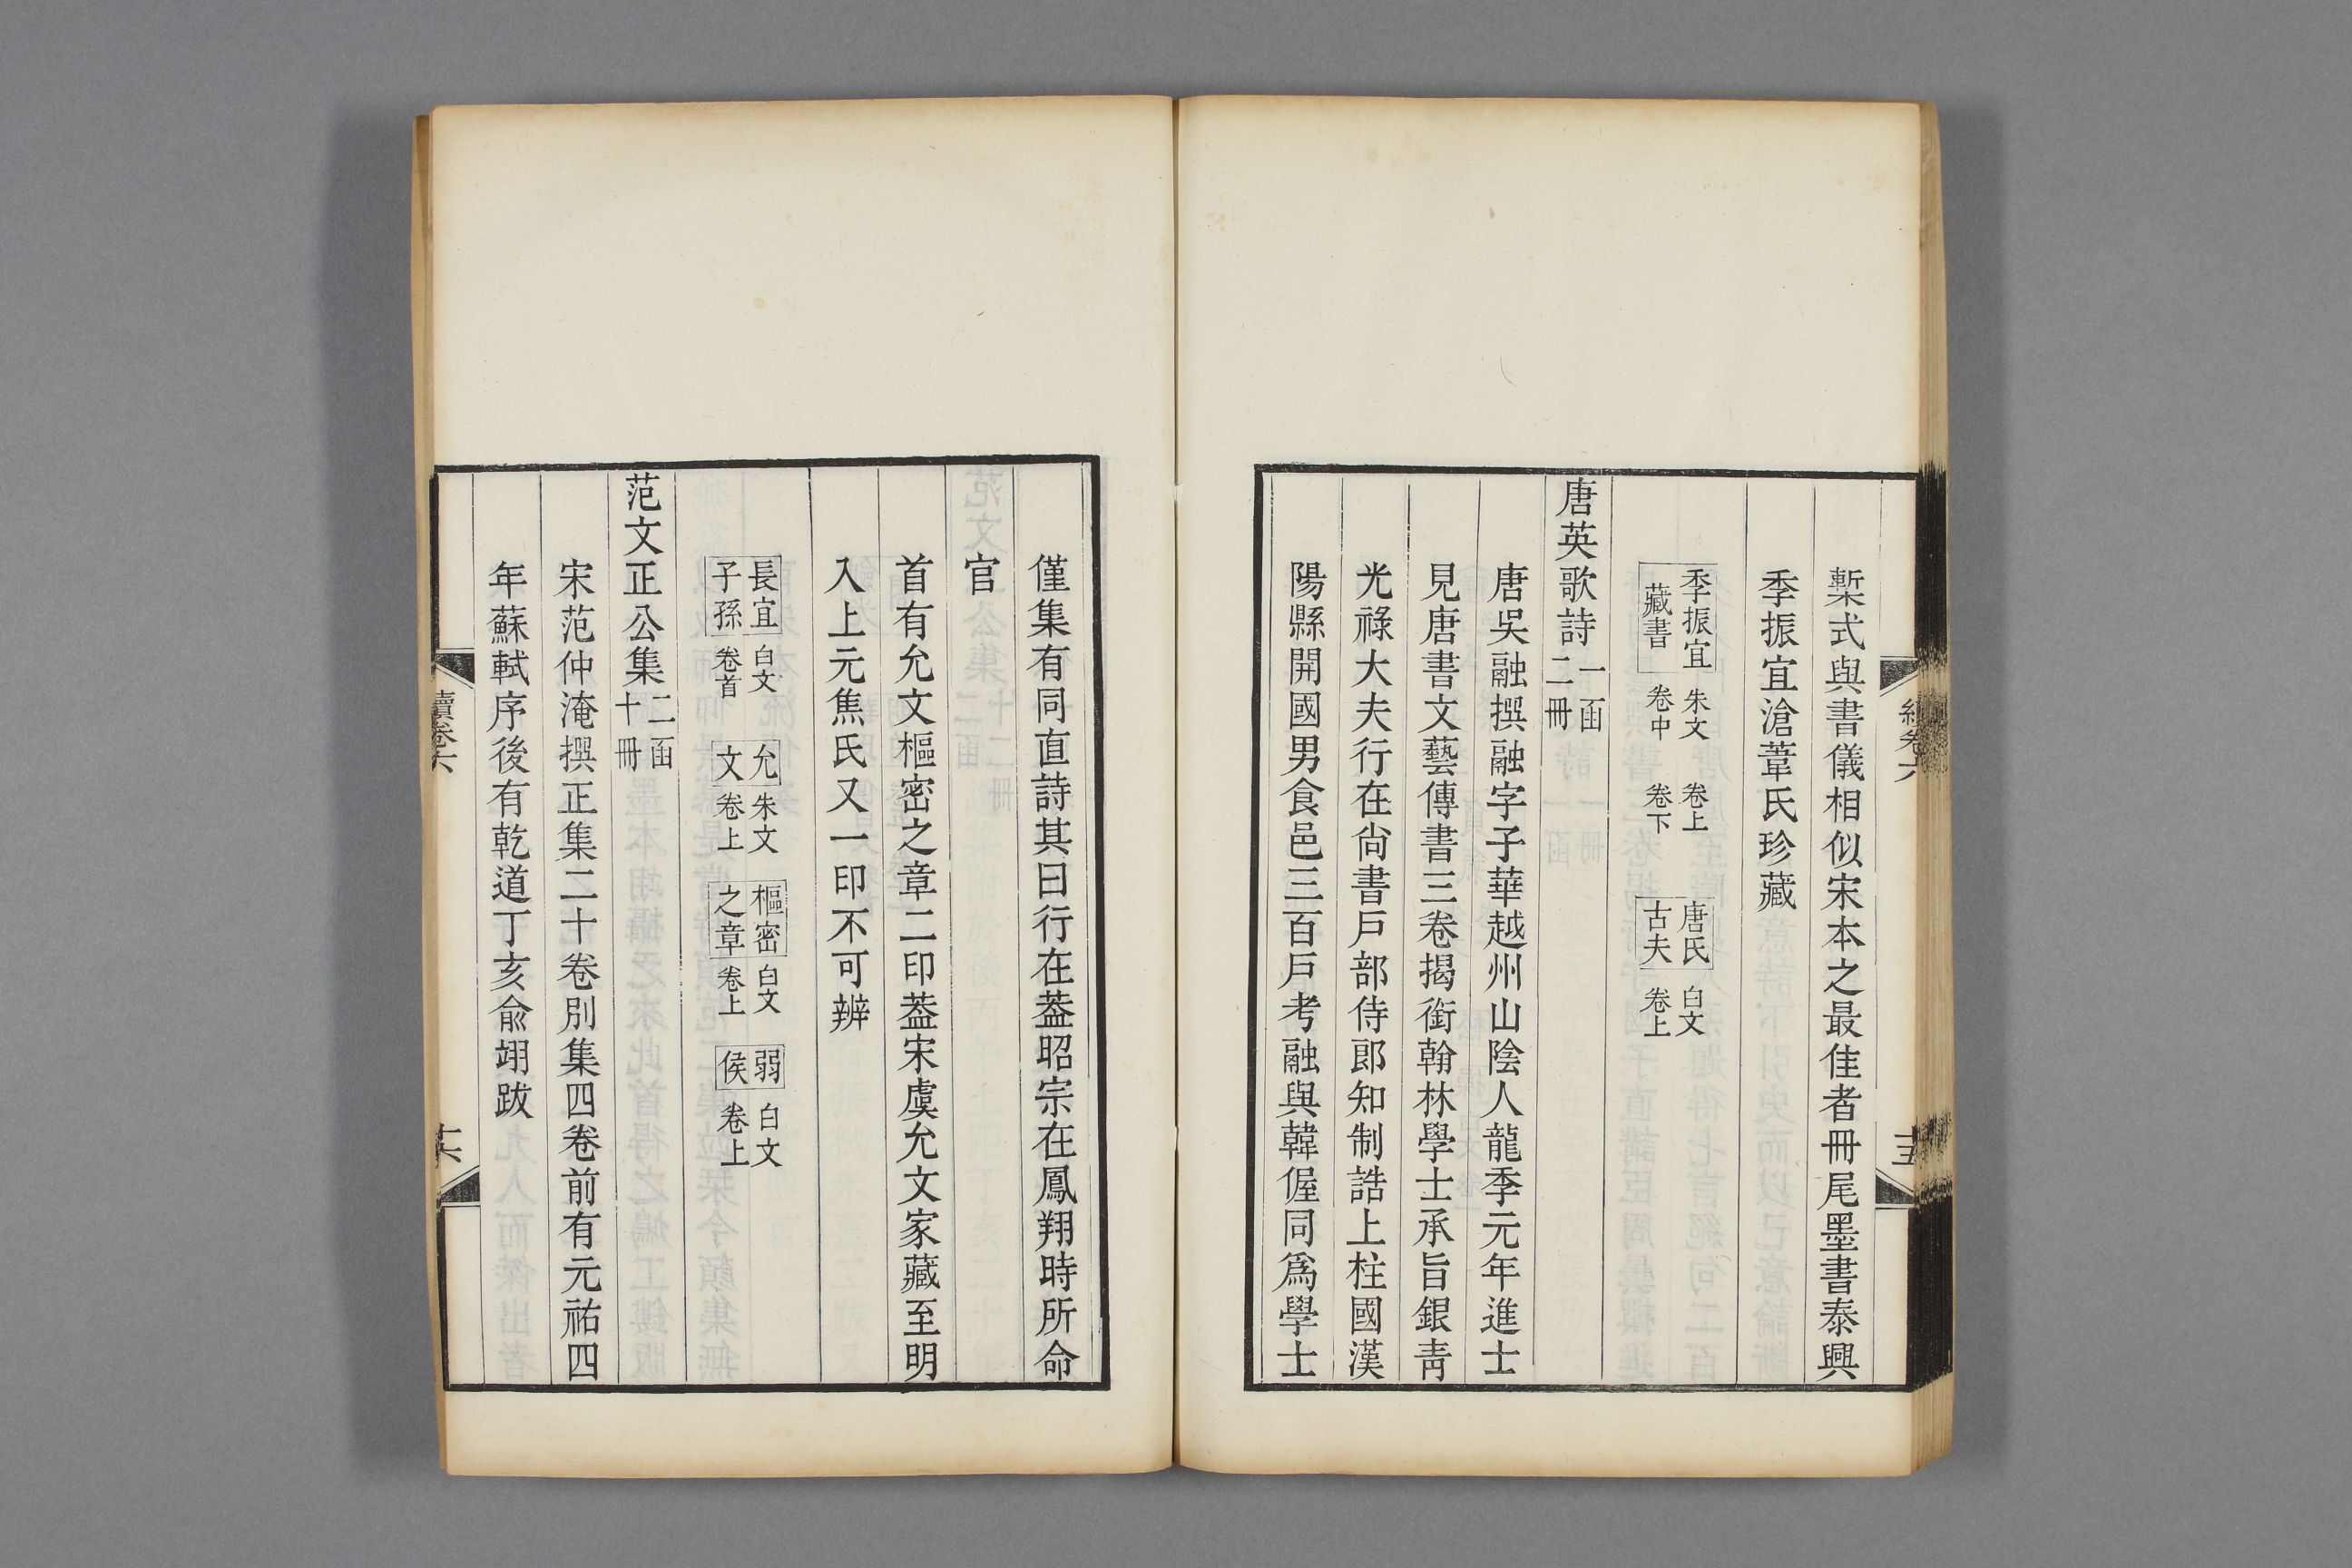 槧式與書儀相似宋本之最佳者冊尾墨書泰興
季振宜滄葦氏珍藏
季振宜藏書 朱文卷中 卷上卷下 唐氏古夫 白文卷上
唐英歌詩 一函二冊
唐吳融撰融字子華越州山陰人龍季元年進士
見唐書文藝傳書三卷揭銜翰林學士承旨銀青
光祿大夫行在尚書戶部侍郎知制誥上柱國漢
陽縣開國男食邑三百戶考融與韓偓同為學士
十五
僅集有同直詩其曰行在葢昭宗在鳳翔時所命
官
首有允文樞密之章二印葢宋虞允文家藏至明
入上元焦氏又一印不可辨
長宜子孫 白文卷首 允文 朱文卷上 樞密之章 白文卷上 弱侯 白文卷上
范文正公集 二函十冊
宋范仲淹撰正集二十卷別集四卷前有元祐四
年蘇軾序後有乾道丁亥俞翊跋
續卷六
十六